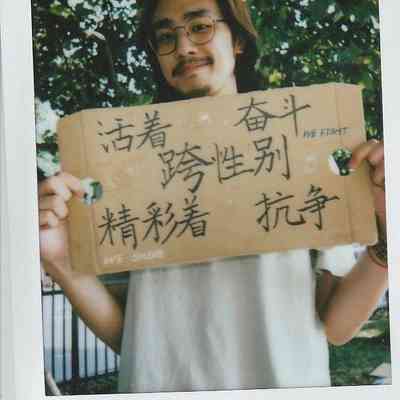 活着 奋斗
WE FIGHT
跨性别
精彩着 抗争
WE SHINE